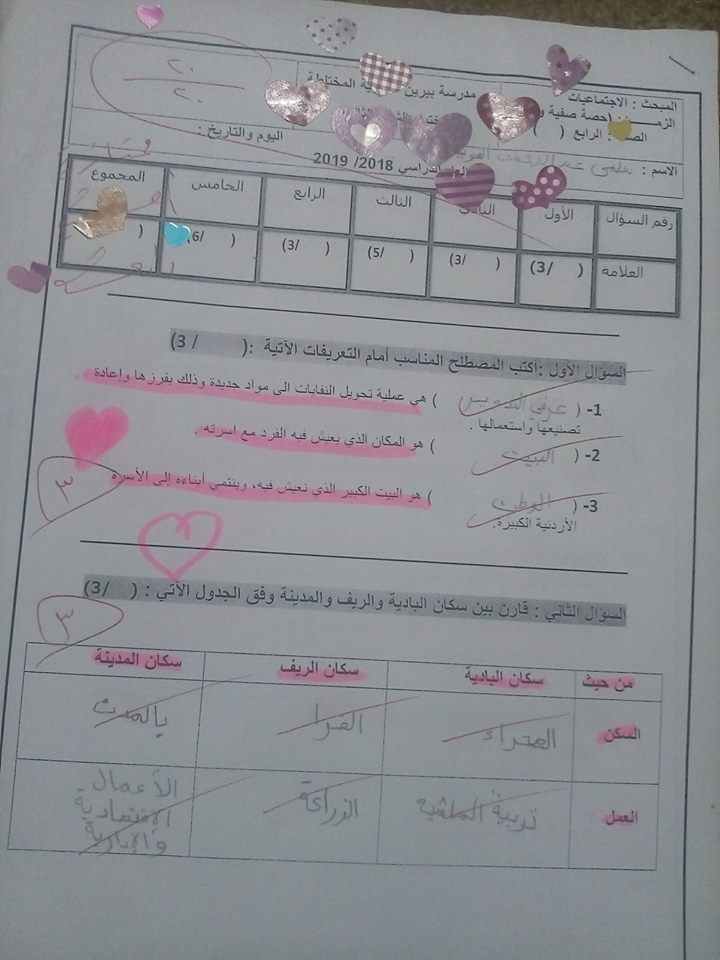 ٢٠
٢٠
المبحث : الاجتماعيات
مدرسة بيرين المختلطة
الزمن : (حصة صفية
الصف : الرابع ( )
اليوم والتاريخ :
الاسم : سلمى عبد الرحمن
العام الدراسي 2018/ 2019
رقم السؤال الأول الثاني الثالث الرابع الخامس المجموع
العلامة ( /3) ( /3) ( /5) ( /3) ( /6) (
السؤال الأول :أكتب المصطلح المناسب أمام التعريفات الآتية :( / 3)
1- ( ) هي عملية تحويل النفايات الى مواد جديدة وذلك بفرزها وإعادة
تصنيعها واستعمالها .
2- ( البيت ) هو المكان الذي يعيش فيه الفرد مع اسرته .
3- ( الوطن ) هو البيت الكبير الذي نعيش فيه، وينتمي أبناءه إلى الأسرة
الأردنية الكبيرة.
٣
السؤال الثاني : قارن بين سكان البادية والريف والمدينة وفق الجدول الآتي : ( /3)
٣
من حيث سكان البادية سكان الريف سكان المدينة
السكن الصحراء القرا بالمدن
العمل تربية الماشيه الزراعة الأعمال
الإقتصادية
والادارية